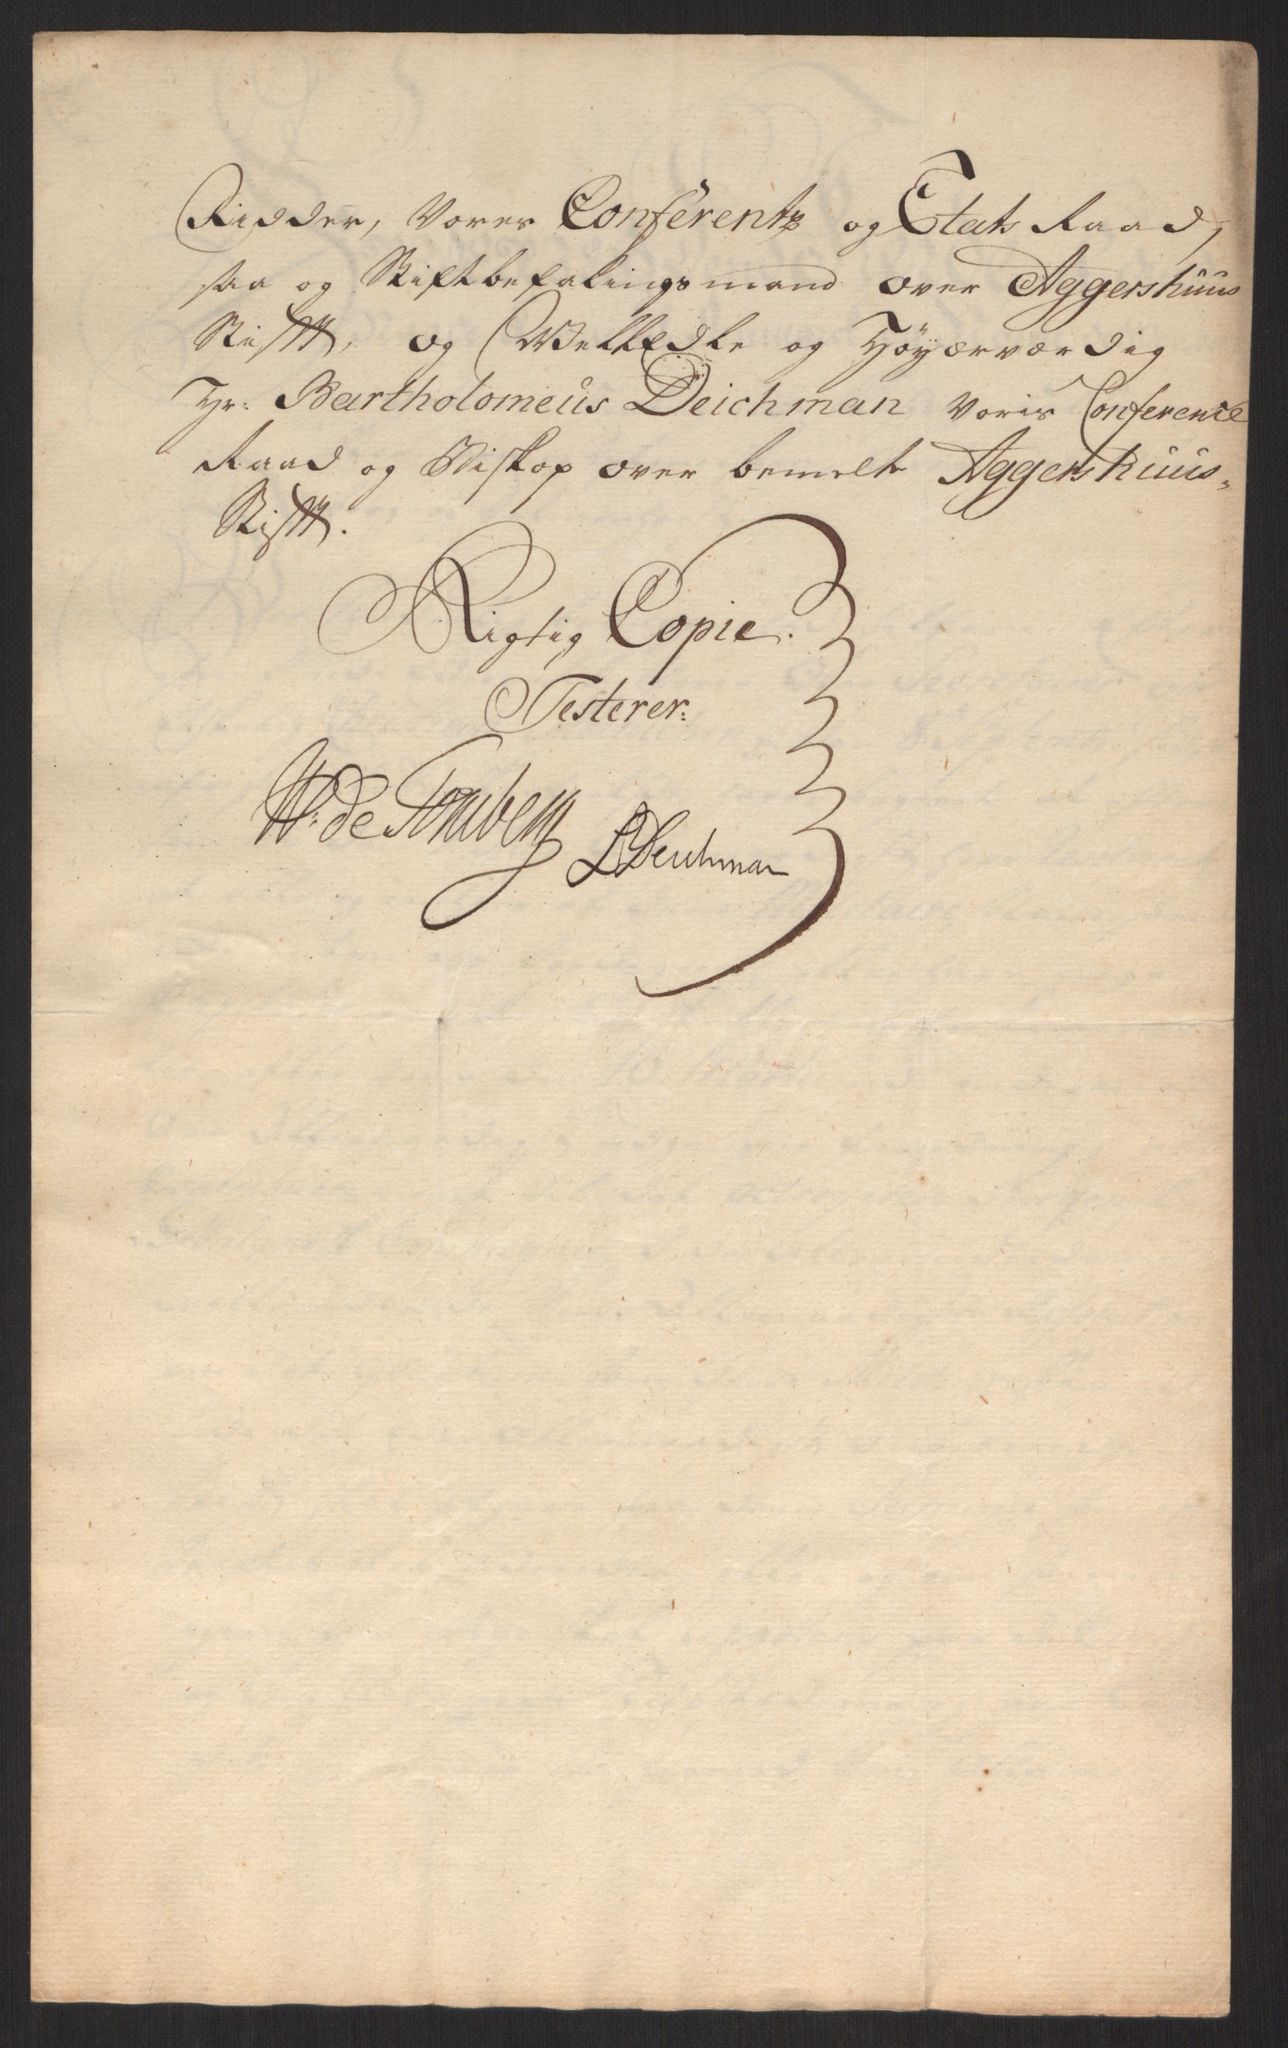 Ridder, Vores Conferentz og Etats Raad,
saa og Stiftbefalingsmand over Aggershuus
Stifft, og WelEdle og Höyærværdig
Hr: Bartholomeus Deichman Voris Conference
Raad og Biskop over bemelte Aggershuus-
Stifft.
Rigtig Copie.
Testerer:
W: de Tonsberg
Deichman